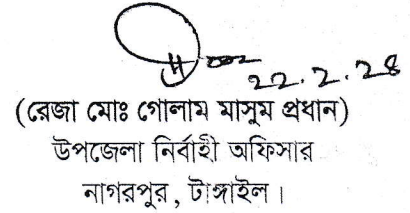 22.2.28
(রেজা মোঃ গোলাম মাসুম প্রধান)
উপজেলা নির্বাহী অফিসার
নাগরপুর, টাঙ্গাইল।